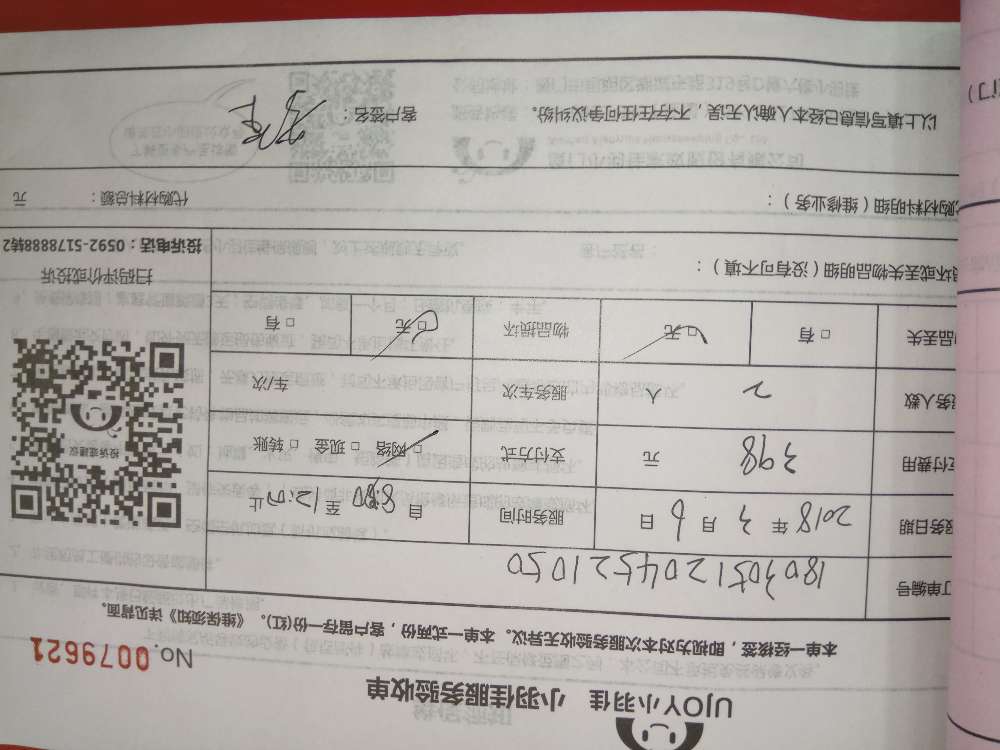 UJOY小羽佳 小羽佳服务验收单
No. 0079621
本单一经核签，即视为对本次服务验收无异议。本单一式两份，客户留存一份(红)。《维保须知》详见背面。
订单编号 180305120452105​0
服务日期 2018 年 3 月 6 日 服务时间 自 8:00 至 12:00 止
支付费用 398 元 支付方式 □ 网络 □ 现金 □ 转账
服务人数 2 人 服务车次 车/次
物品丢失 □ 有 □ 无 物品损坏 □ 无 □ 有
投诉或建议
扫码评价或投诉
投诉电话：0592-5178888转2
损坏或丢失物品明细（没有可不填）：
代购材料明细（维修业务）： 代购材料总额： 元
以上填写信息已经本人确认无误，不存在任何争议纠纷。 客户签名：